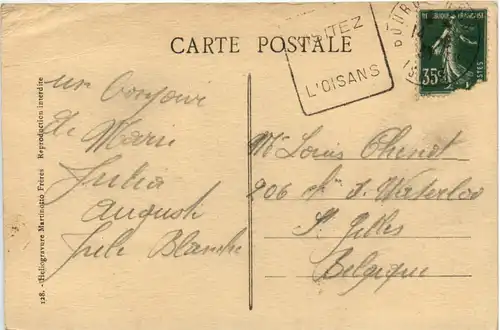 CARTE POSTALE
VISITEZ
L'OISANS
35c
POSTES
128. - Héliogravure Martinotto Frères Reproduction interdite
un bonjour
de Marie
Julia
August
Jule Blanche
Mr Louis
206 de Waterloo
St Gilles
Belgique